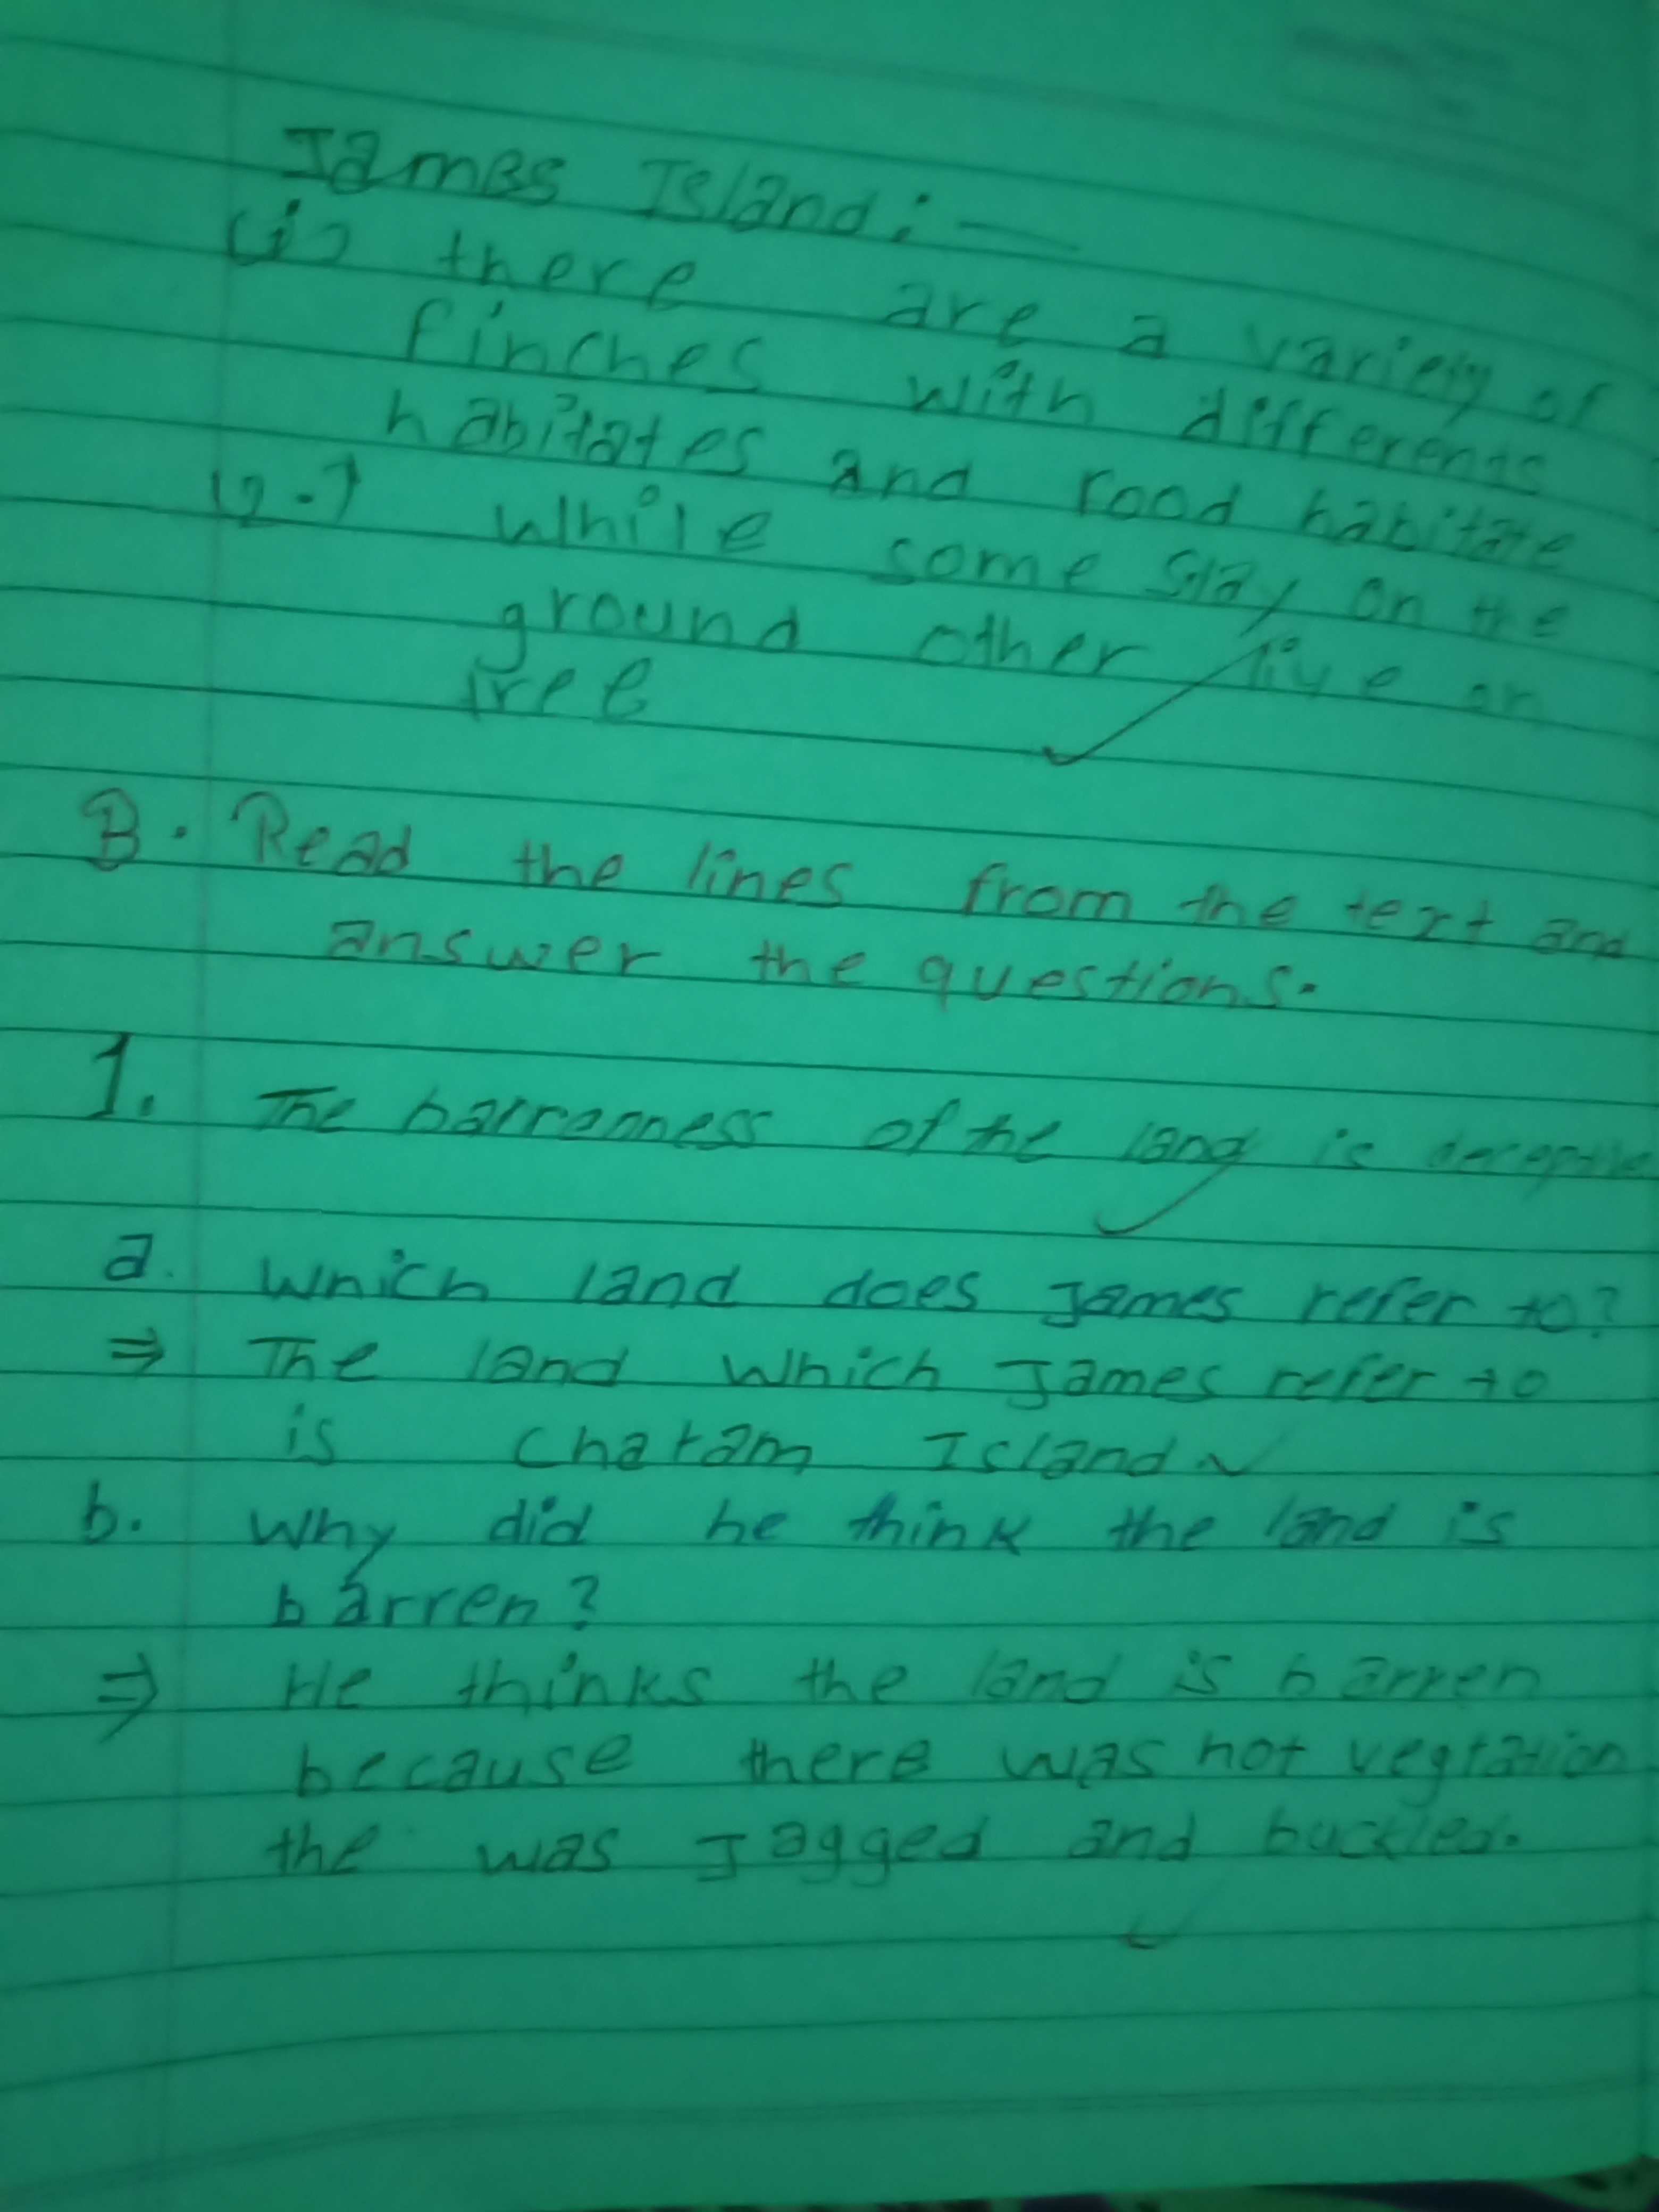 James Island :-
(i) there are a variety of
finches with differents
habitates and food habitate
(2.) While some stay on the
ground other live on
tree
B. Read the lines from the text and
answer the questions.
1. The barrenness of the land is deceptive
a. Which land does James refer to?
⇒ The land which James refer to
is Chatam Island
b. Why did he think the land is
barren?
⇒ He thinks the land is barren
because there was not vegtation
the was Jagged and buckled.